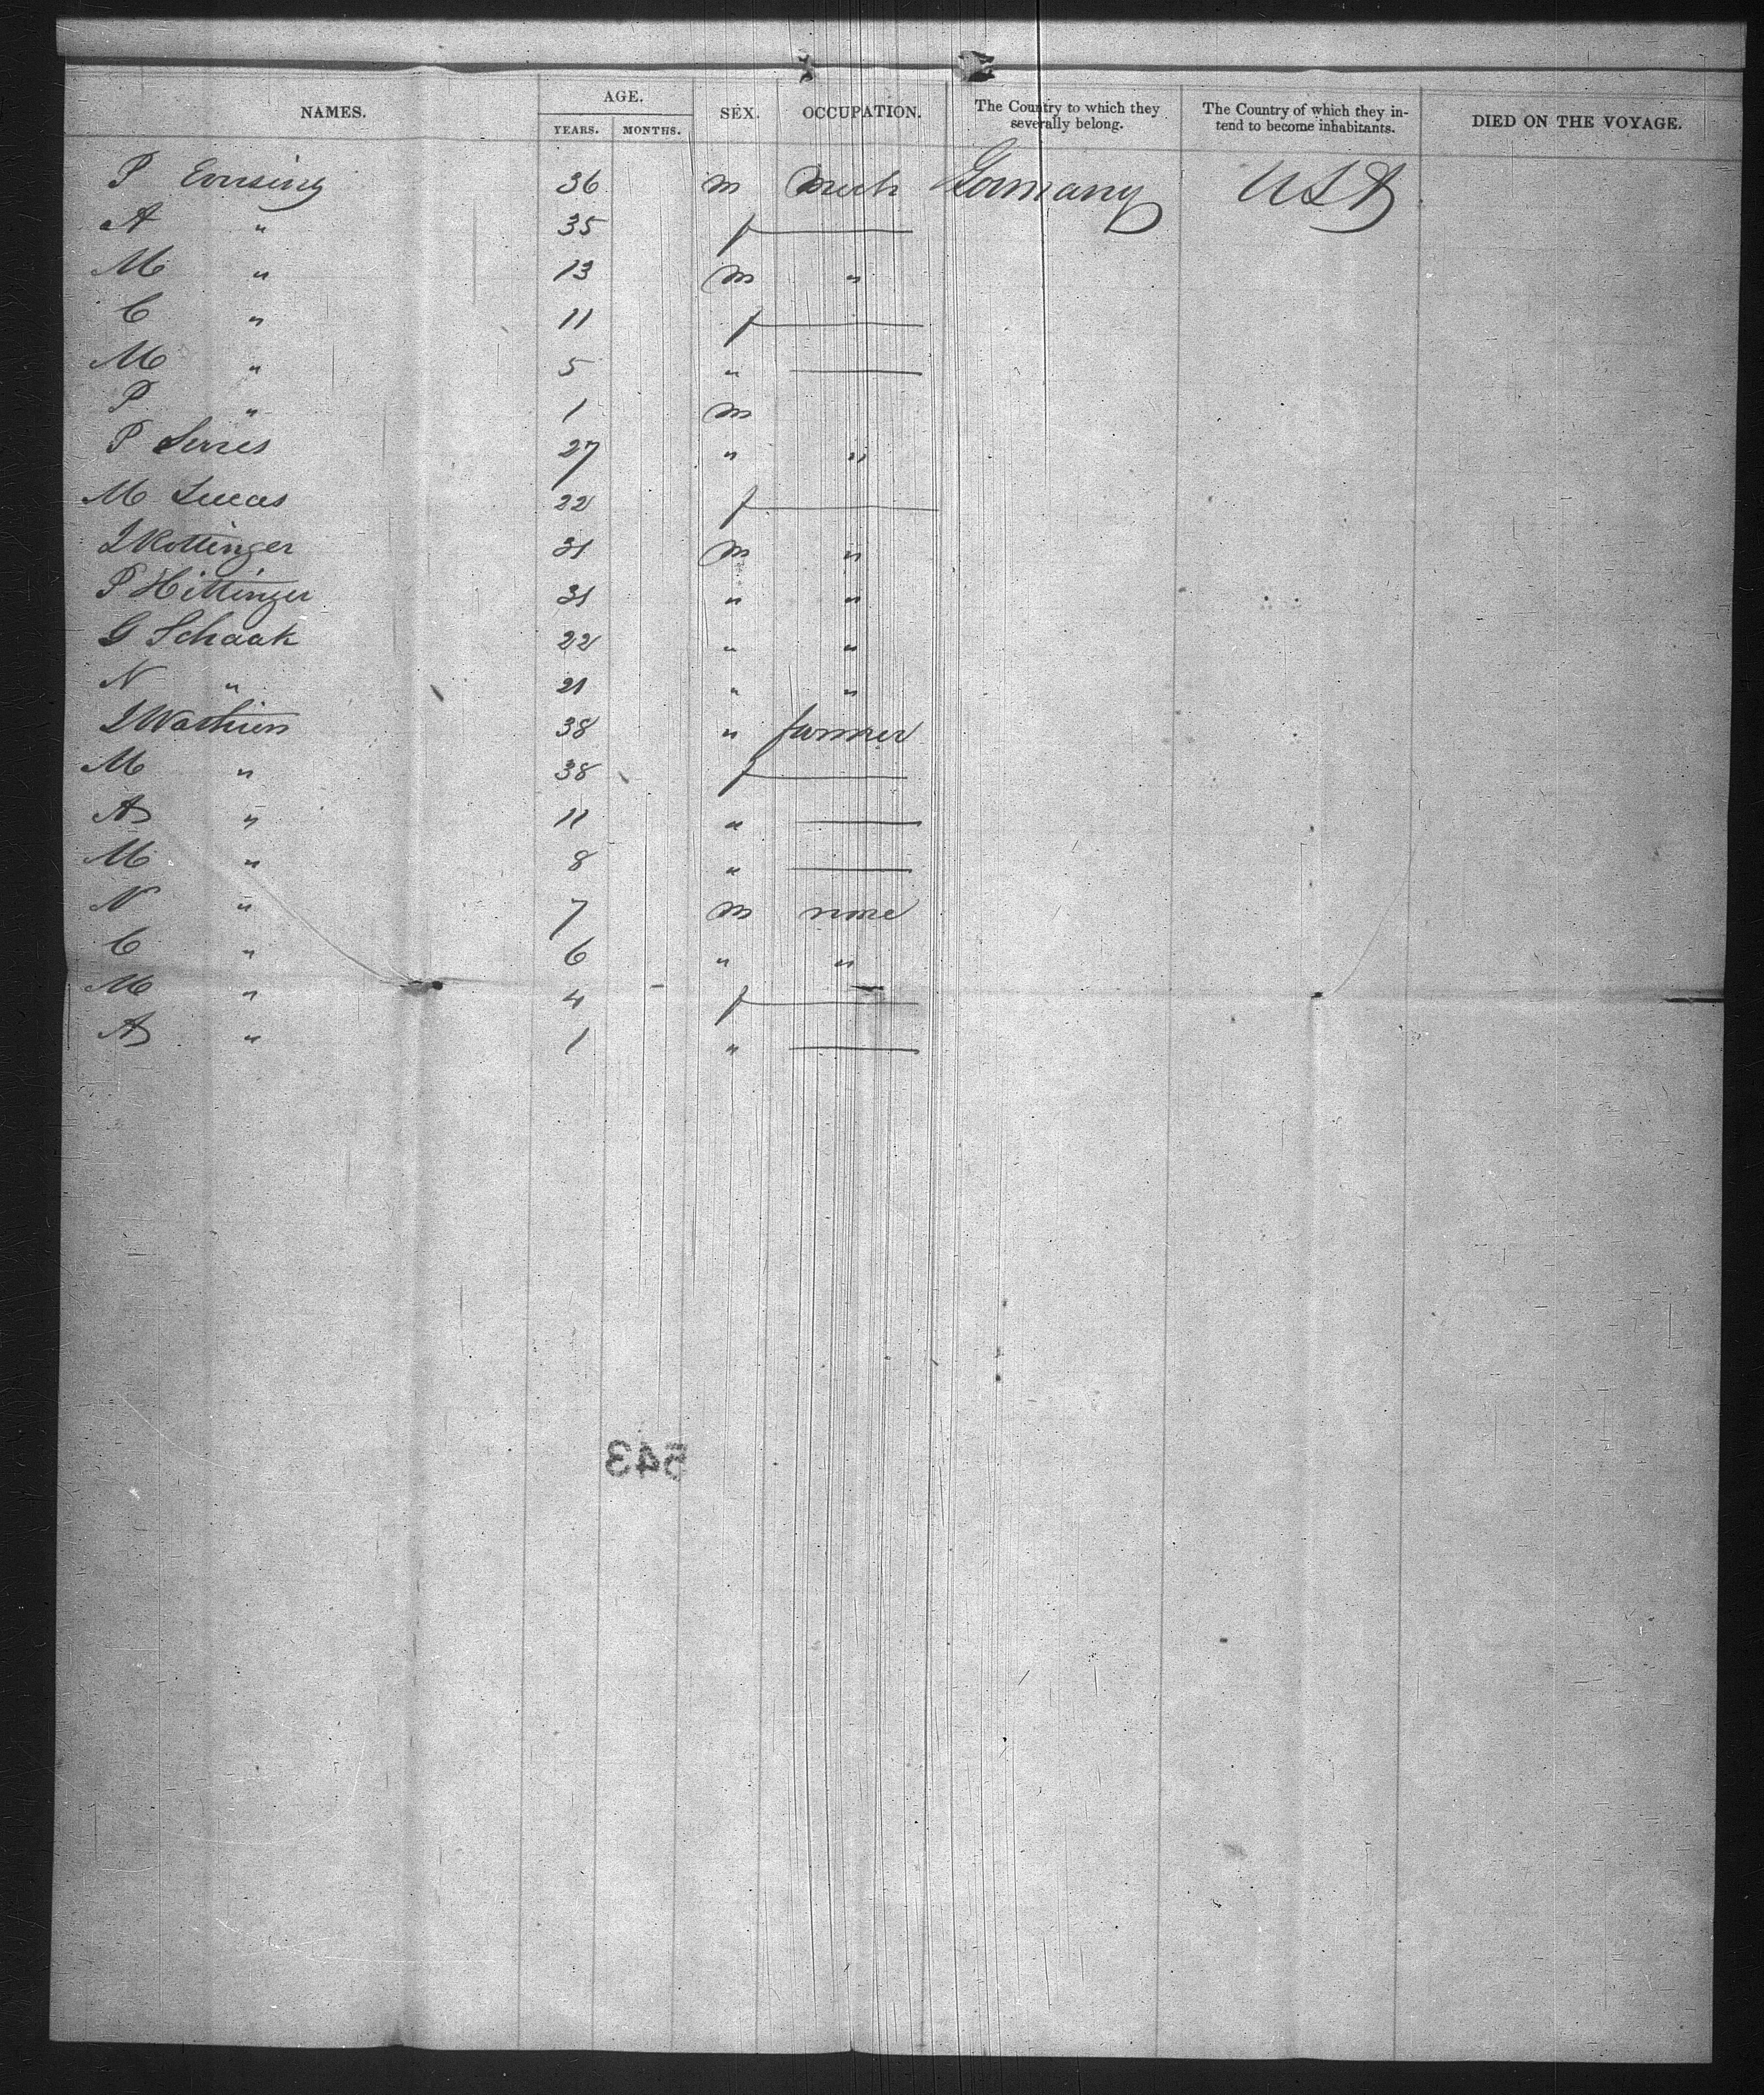 NAMES. AGE. SEX. OCCUPATION. The Country to which they severally belong. The Country of which they in-tend to become inhabitants. DIED ON THE VOYAGE.
YEARS. MONTHS.
P 36 m Mech Germany USA
A " 35 f —
M " 13 m "
C " 11 f —
M " 5 " —
P " 1 m
P Serres 27 " "
M Lucas 22 f —
J Kottinger 31 m "
P Hittinger 31 " "
G Schaak 22 " "
N " 21 " "
J 38 " farmer
M " 38 f —
A " 11 " —
M " 8 " —
N " 7 m none
C " 6 " "
M " 4 f —
A " 1 " —
543